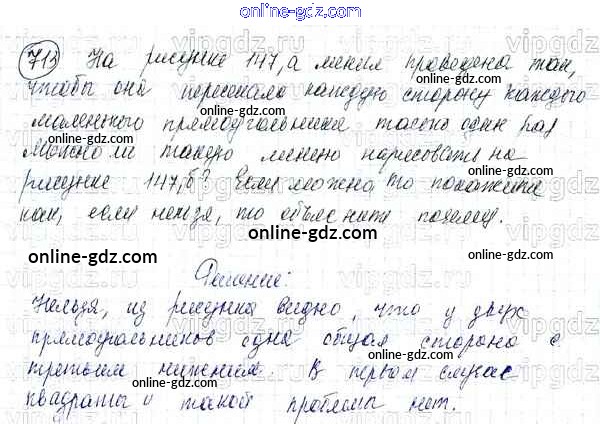 online-gdz.com
713 На рисунке 147,а линия проведена так,
чтобы она пересекала каждую сторону каждого
маленького прямоугольника только один раз
Можно ли такую линию нарисовать на
рисунке 147,б? Если можно то покажите
как, если нельзя, то объяснить почему.
Решение:
Нельзя, из рисунка видно, что у двух
прямоугольников одна общая сторона с
третьим нижним. В первом случае
квадраты и такой проблемы нет.
online-gdz.com
online-gdz.com
online-gdz.com
online-gdz.com
online-gdz.com
online-gdz.com
online-gdz.com